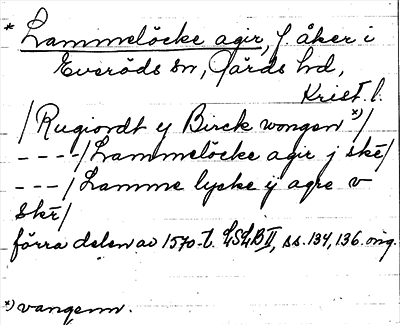 * Lammelöcke agir, f. åker i
Everöds sn, Gärds hd,
Krist. l.
/Rugiordt ij Birck wongen *)/
----/Lammelöcke agir j skè/
---/Lamme lycke ij agre v
Skè/
förra delen av 1570-t. LSLB II, ss. 134, 136. orig.
*) vangenn.